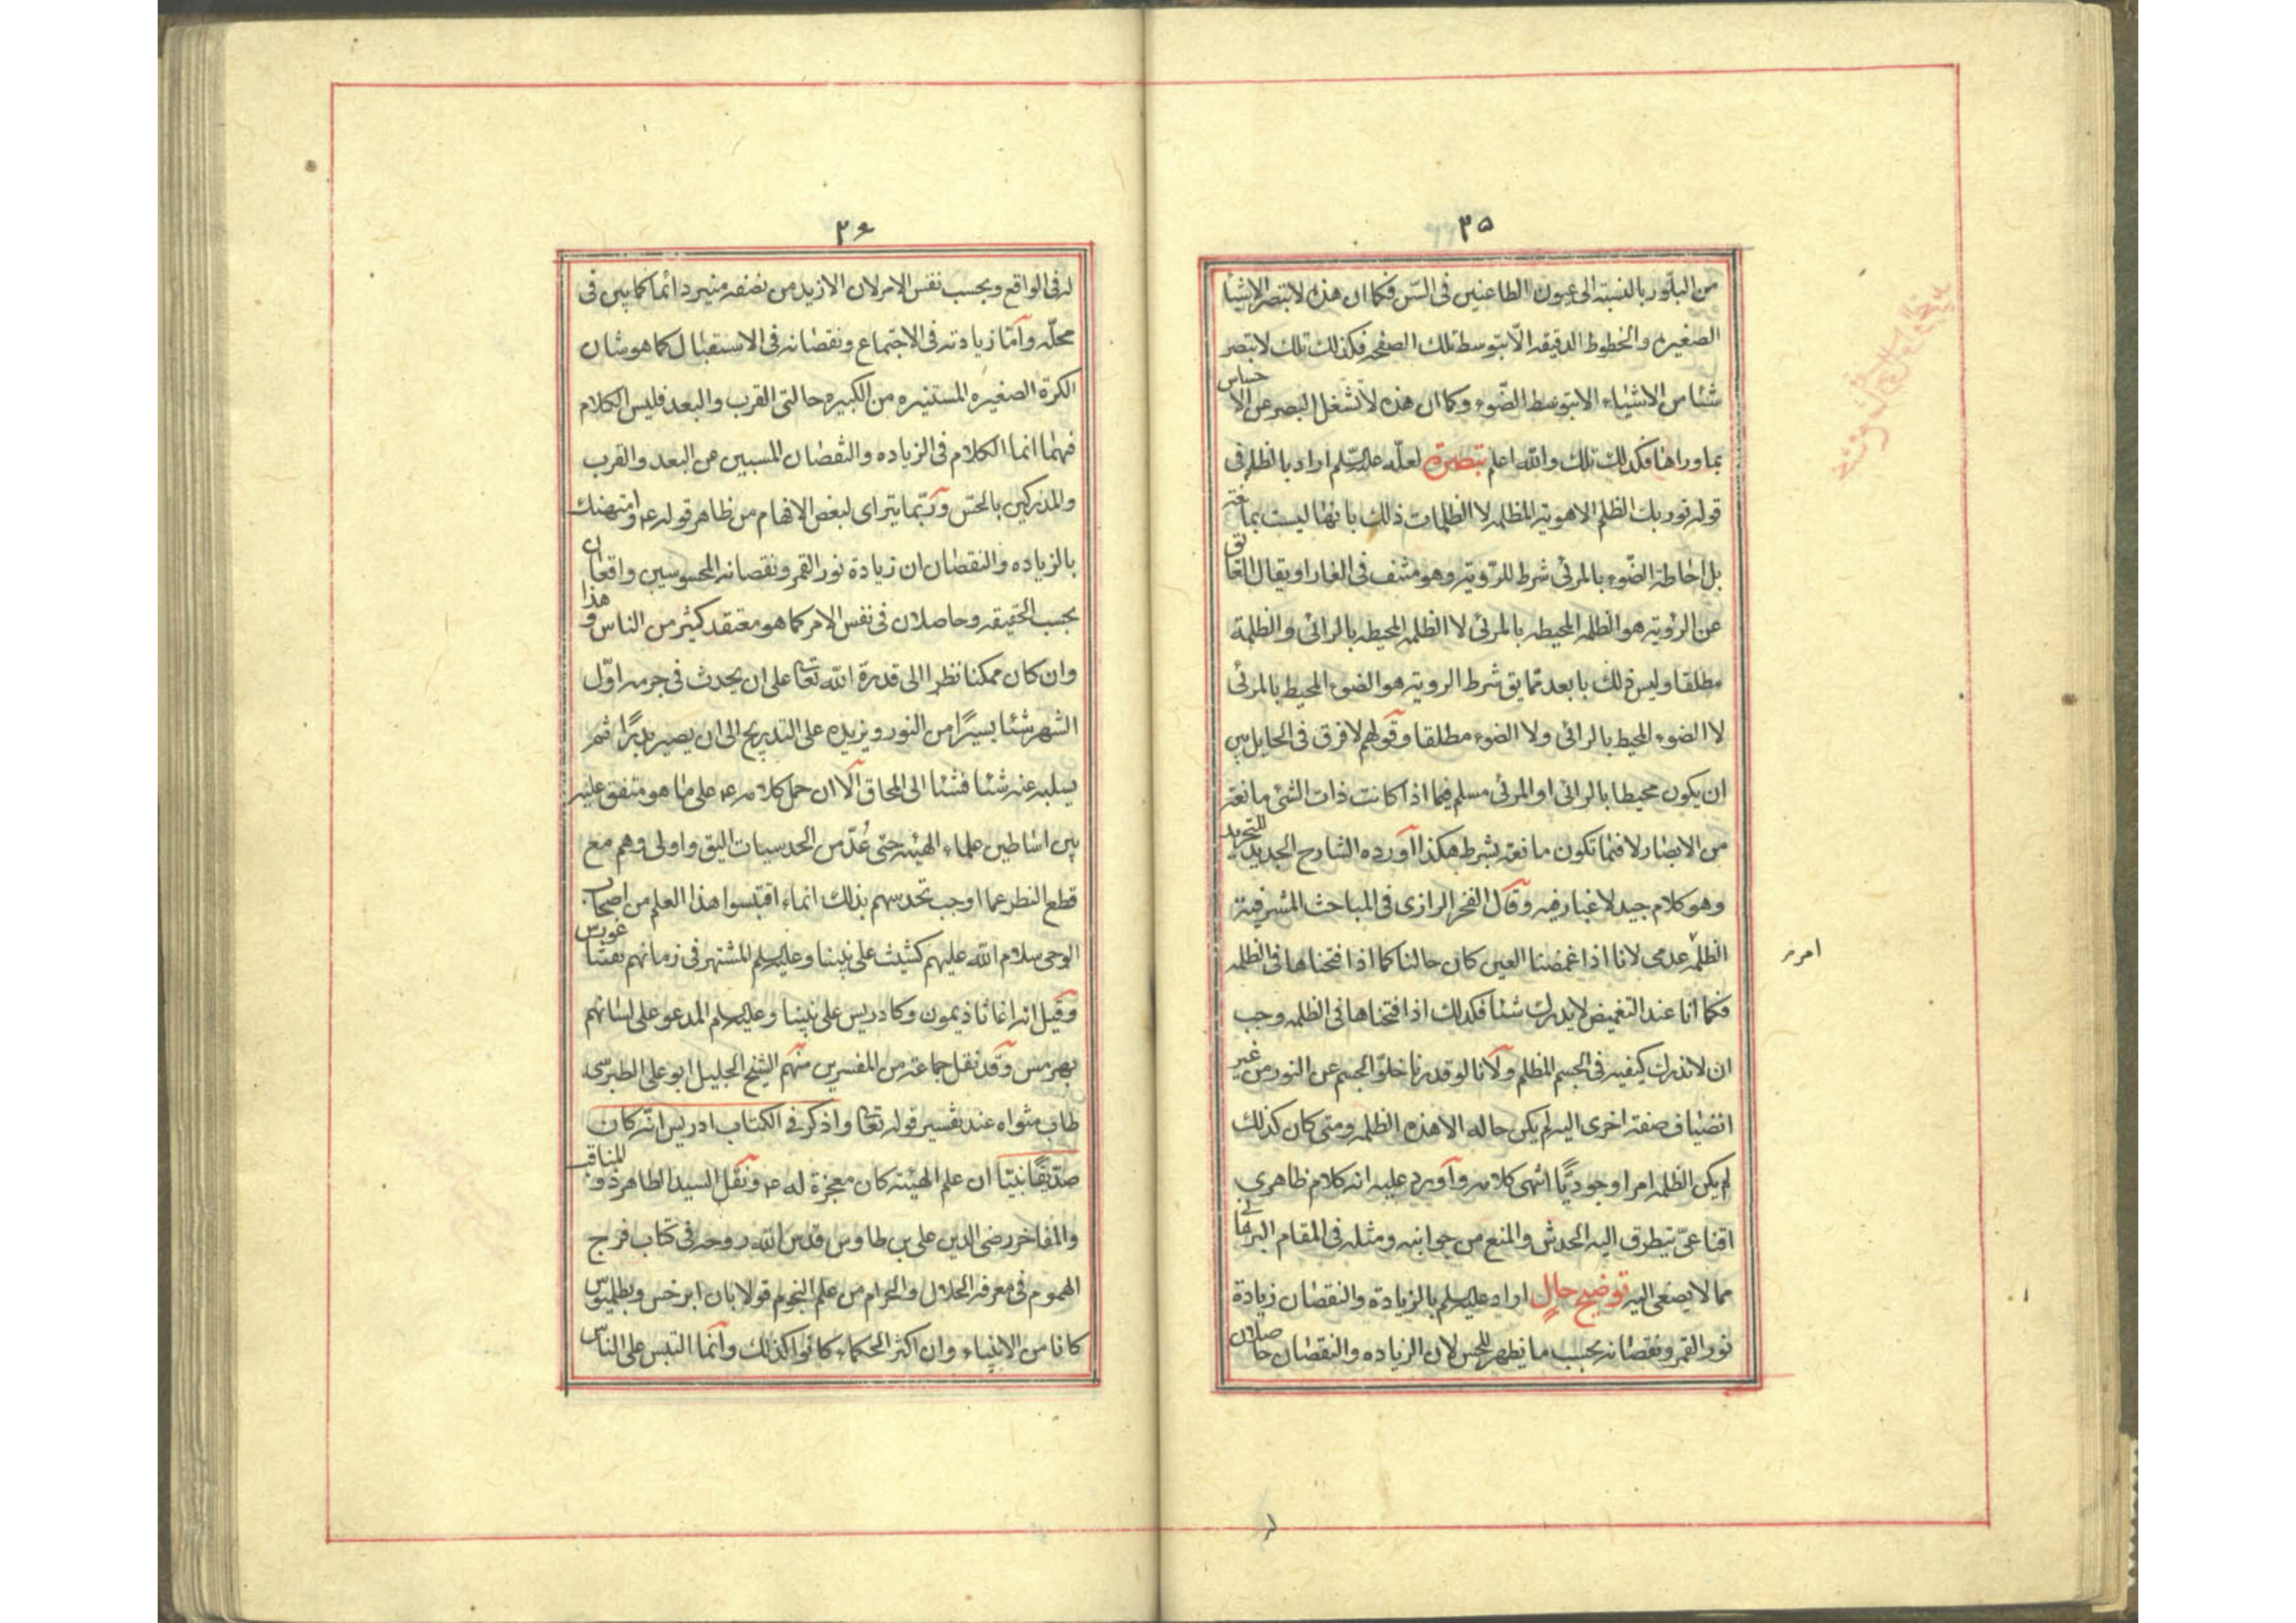 ٣٥
من البلّور بالنسبة الى عيون الطاعنين فى السّن فكما ان هذه لا تبصر الاشيأ
الصغيره والخطوط الدقيقه الّا بتوسط تلك الصفحه فكذلك تلك لا تبصر
شئا من الاشياء الا بتوسط الضّوء وكما ان هذه لا تشغل البصر عن الا حساس
بما وراها فكذلك تلك والله اعلم تبصرة لعلّه عليه السّلم اراد بالظلم فى
قوله نور بك الظلم الاهويه المظلمه لا الظلمات ذلك بانها ليست بما نعة
بل احاطة الضّوء بالمرئى شرط للرّوية وهو منتف فى الغار او يقال العا ئق
عن الرؤية هو الظلمه المحيطه بالمرئى لا الظلمه المحيطه بالرائى والظلمة
مطلقا وليس ذلك بابعد مما يق شرط الروية هو الضوء المحيط بالمرئى
لا الضوء المحيط بالرائى ولا الضوء مطلقا وقولهم لا فرق فى الحايل بين
ان يكون محيطا بالرائى او المرئى مسلم فيما اذا كانت ذات الشئ مانعة
من الابصار لا فيما تكون مانعة بشرط هكذا آورده الشارح الجديد للتجريد
وهو كلام جيد لا غبار فيه وقال الفخر الرازى فى المباحث المشرقية
الظلمه عدمى لانا اذا غمضنا العين كان حالنا كما اذا فتحناها فى الظلمه
امر
فكما انا عند التغميض لا يدرك شئا فكذلك اذا فتحناها فى الظلمه وجب
ان لا ندرك كيفيه فى الجسم المظلم ولانا لو قدرنا خلوّ الجسم عن النور من غير
انضياف صفة اخرى اليه لم يكن حاله الا هذه الظلمه ومتى كان كذلك
لم يكن الظلمه امرا وجوديًّا انتهى كلامه وآورد عليه انه كلام ظاهرى
اقناعىّ يتطرق اليه الخدش والمنع من جوانبه ومثله فى المقام البرها نى
مما لا يصغى اليه توضيح حال اراد عليه السلم بالزيادة والنقصان زيادة
نور القمر ونقصانه بحسب ما يظهر للحس لان الزياده والنقصان حا صلان
٣٦
له فى الواقع وبحسب نفس الامر لان الازيد من نصفه منير دائما كما بين فى
محلّه وآمّا زيادته فى الاجتماع ونقصانه فى الاستقبال كما هو شان
الكرة الصغيره المستنيره من الكبيره حالتى القرب والبعد فليس الكلام
فيهما انما الكلام فى الزياده والنقصان المسببين عن البعد والقرب
والمدركين بالحسّ وربّما يترآى لبعض الافهام من ظاهر قوله ع وامتهنك
بالزياده والنقصان ان زيادة نور القمر ونقصانه المحسوسين واقعا ن
بحسب الحقيقه وحاصلان فى نفس الامر كما هو معتقد كثير من الناس و هذا
وان كان ممكنا نظرا الى قدرة الله تعا على ان يحدث فى جرمه اوّل
الشهر شئا يسيرًا من النور ويزيده على التدريج الى ان يصير بدرًا ثم
يسلبه عنه شئا فشئا الى المحاق الّا ان حمل كلامه ع على ما هو متفق عليه
بين اساطين علماء الهيئه حتى عُدّ من الحدسيات اليق واولى وهم مع
قطع النظر عما اوجب تحدسهم بذلك انما اقتبسوا هذا العلم من اصحاب
الوحى سلام الله عليهم كشيث على نبينا وعليه السلم المشتهر فى زمانهم بغيثا
وقيل انه اغاثاذيمون وكادريس على نبينا وعليه السلم المدعو على لسانهم
بهرمس وقد نقل جماعة من المفسرين منهم الشيخ الجليل ابو على الطبرسى
طاب مثواه عند تفسير قوله تعا واذكر فى الكتاب ادريس انه كان
صدّيقًا نبيّا ان علم الهيئة كان معجزة له ع ونقل السيد الطاهر ذو المناقب
والمفاخر رضى الدين على بن طاوس قدس الله روحه فى كتاب فرج
الهموم فى معرفه الحلال والحرام من علم النجوم قولا بان ابرخس وبطلميوس
كانا من الانبياء وان اكثر الحكماء كانوا كذلك وآنما التبس على الناس